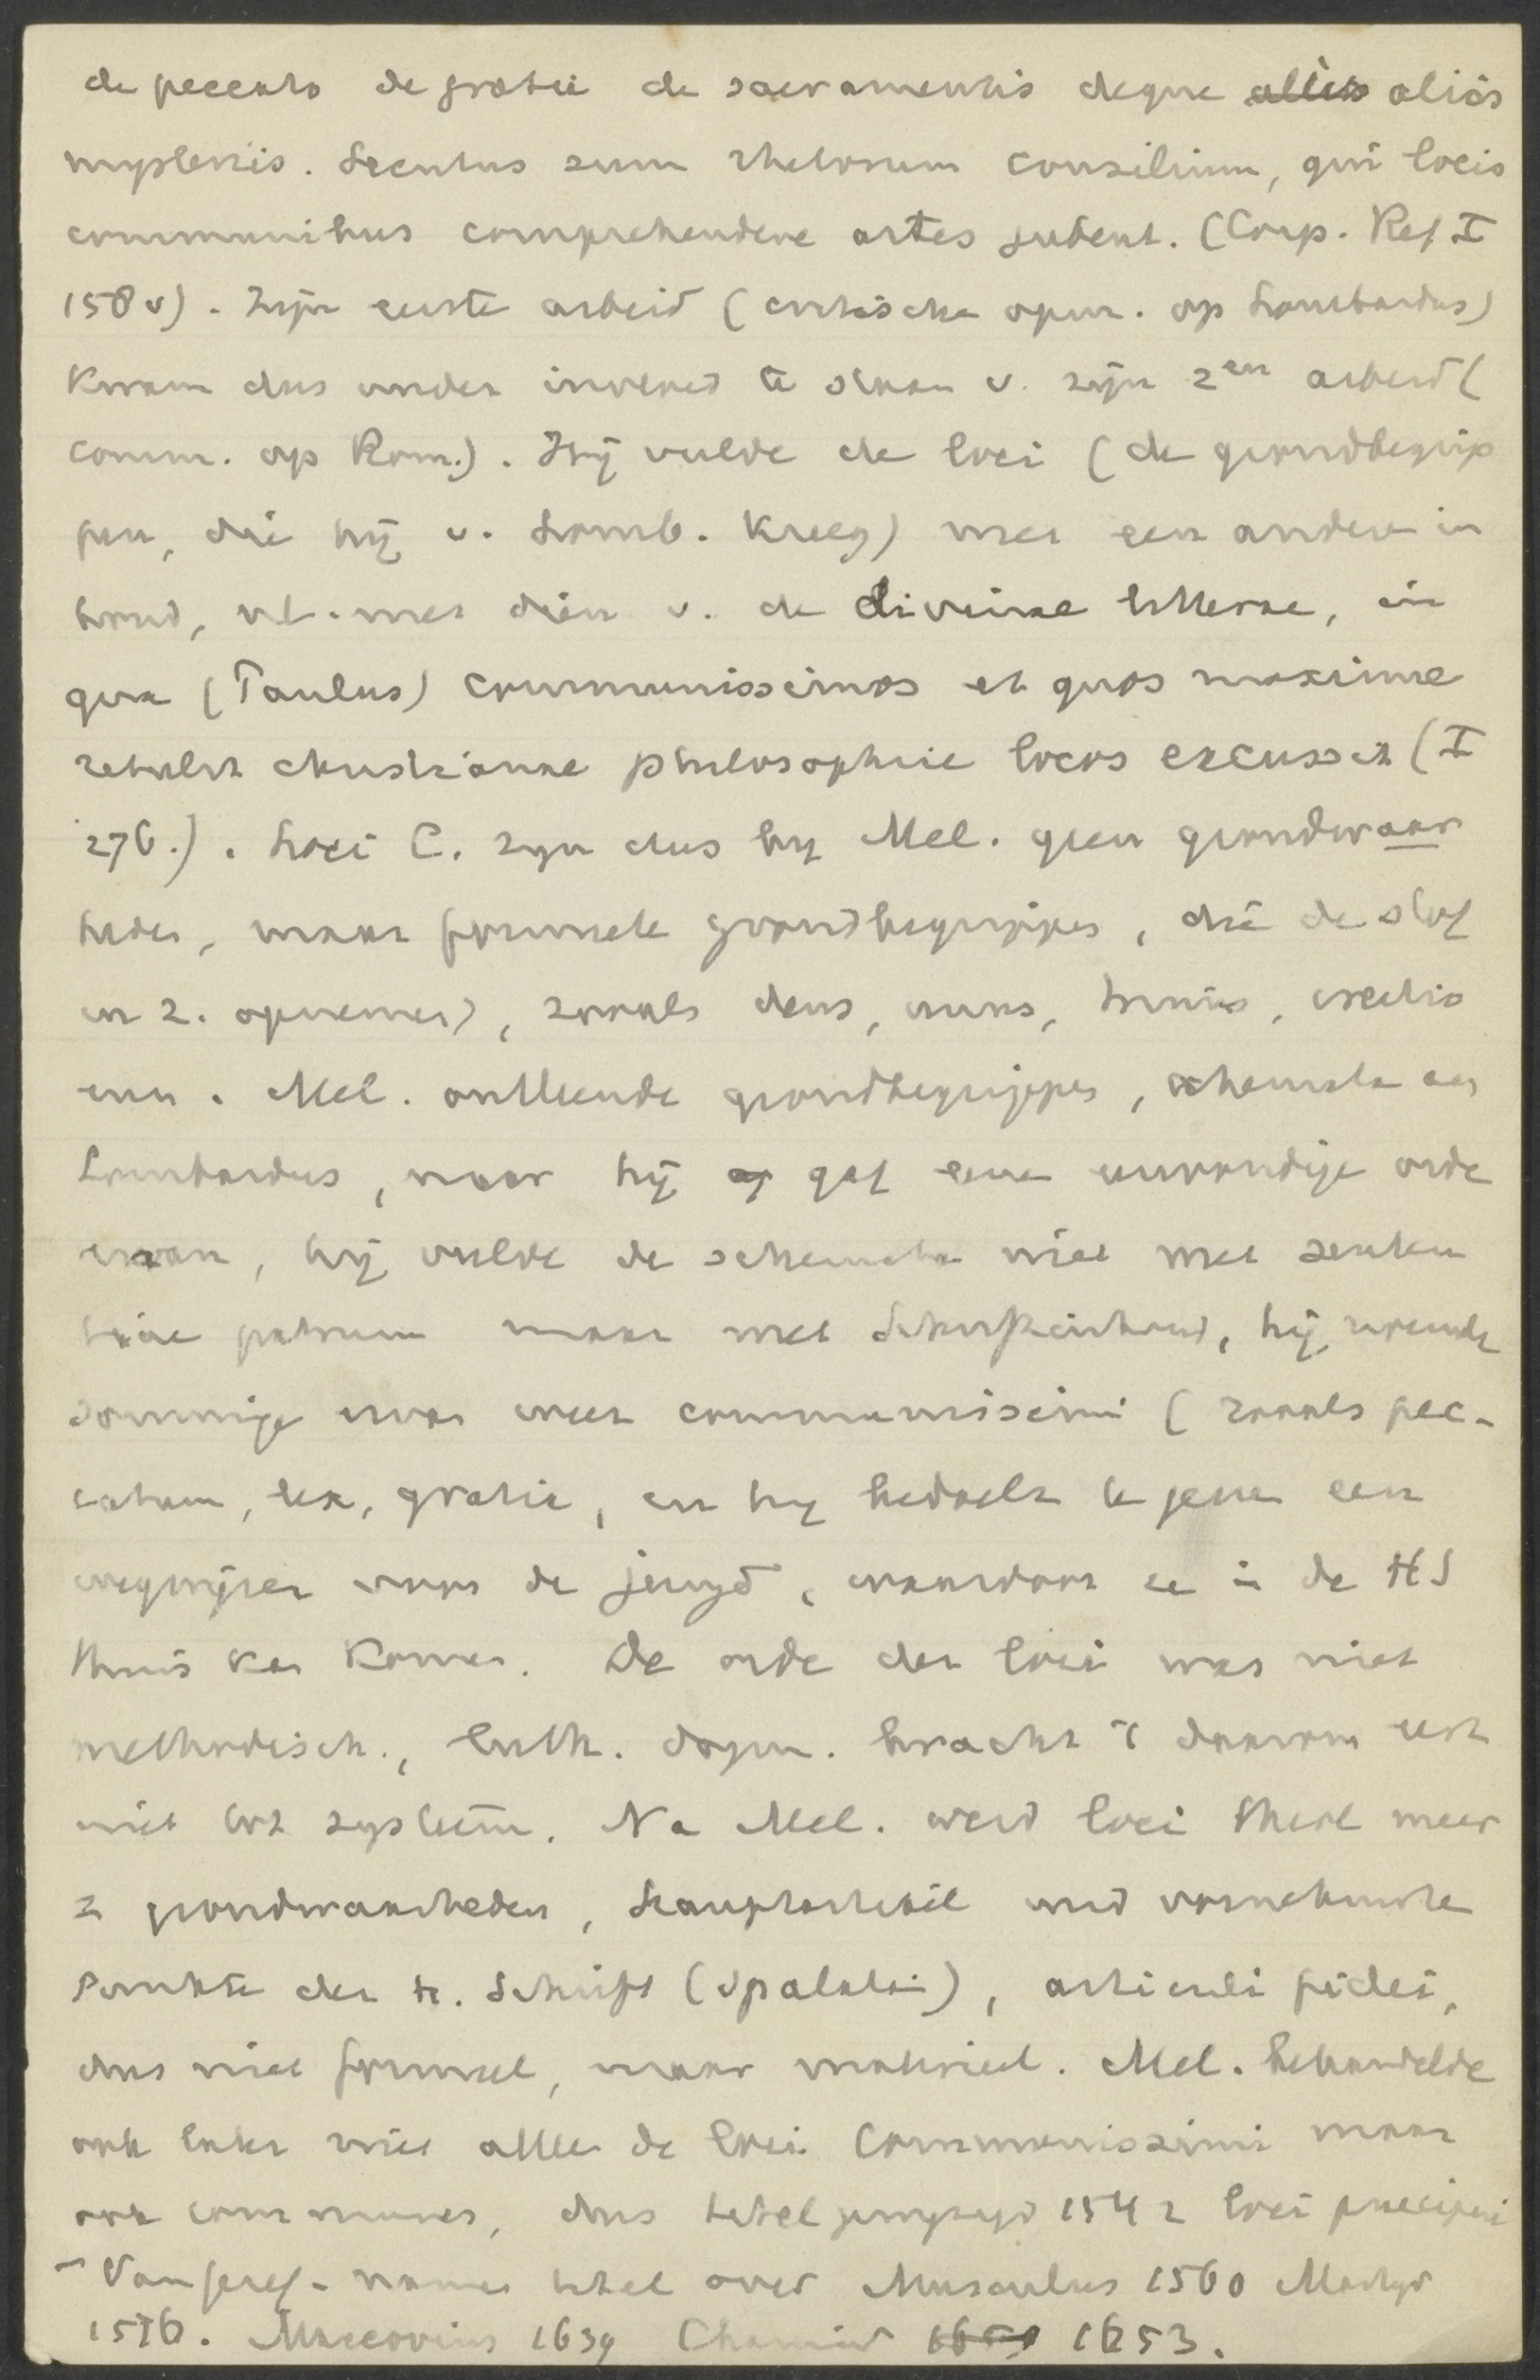 de peccato de gratia de sacramentis deque aliis
mysteriis. Secutus sum rhetorum consilium, qui locis
communibus comprehendere artes jubent. (Corp. Ref I
158 v). Zijn eerste arbeid (critische opm. op Lombardus)
kwam dus onder invloed te staan v. zijn 2en arbeid (
comm. op Rom.). Hij vulde de loci (de grondbegrip
pen, die hij v. Lomb. kreeg) met een andere in
houd, nl. met dien v. de divinae litterae, in
qua (Paulus) communissimos et quos maxime
retulit christianae philosophiae locos excussit (I
276.). Loci C. zijn dus bij Mel. geen grondwaar
heden, maar formele grondbegrippen, die de stof
in z. opnemen), zooals deus, unus, trinus, creatio
enz. Mel. ontleende grondbegrippen, schemata aan
Lombardus, maar hij gaf eene eenvoudige orde
ervan, hij vulde de schemata niet met senten
tiae patrum maar met Schriftinhoud, hij noemde
sommige ervan weer communissimi (zooals pec-
catum, lex, gratia, en hij bedoelt te geven een
wegwijzer voor de jeugd, waardoor ze in de HS
thuis kan komen. De orde der loci was niet
methodisch., luth. dogm. bracht 't daarom eerst
niet tot systeem. Na Mel. werd loci theol meer
= grondwaarheden, Hauptartikel und vornehmste
Punkte der H. Schrift (Spalatin), articuli fidei,
dus niet formeel, maar materieel. Mel. behandelde
ook later niet alleen de loci communissimi maar
ook communes, dus titel gewijzigd 1542 loci praecipui
- Van geref. namen titel over Musculus 1560 Martyr
1576. Maccovius 1639 Chamier 1653.